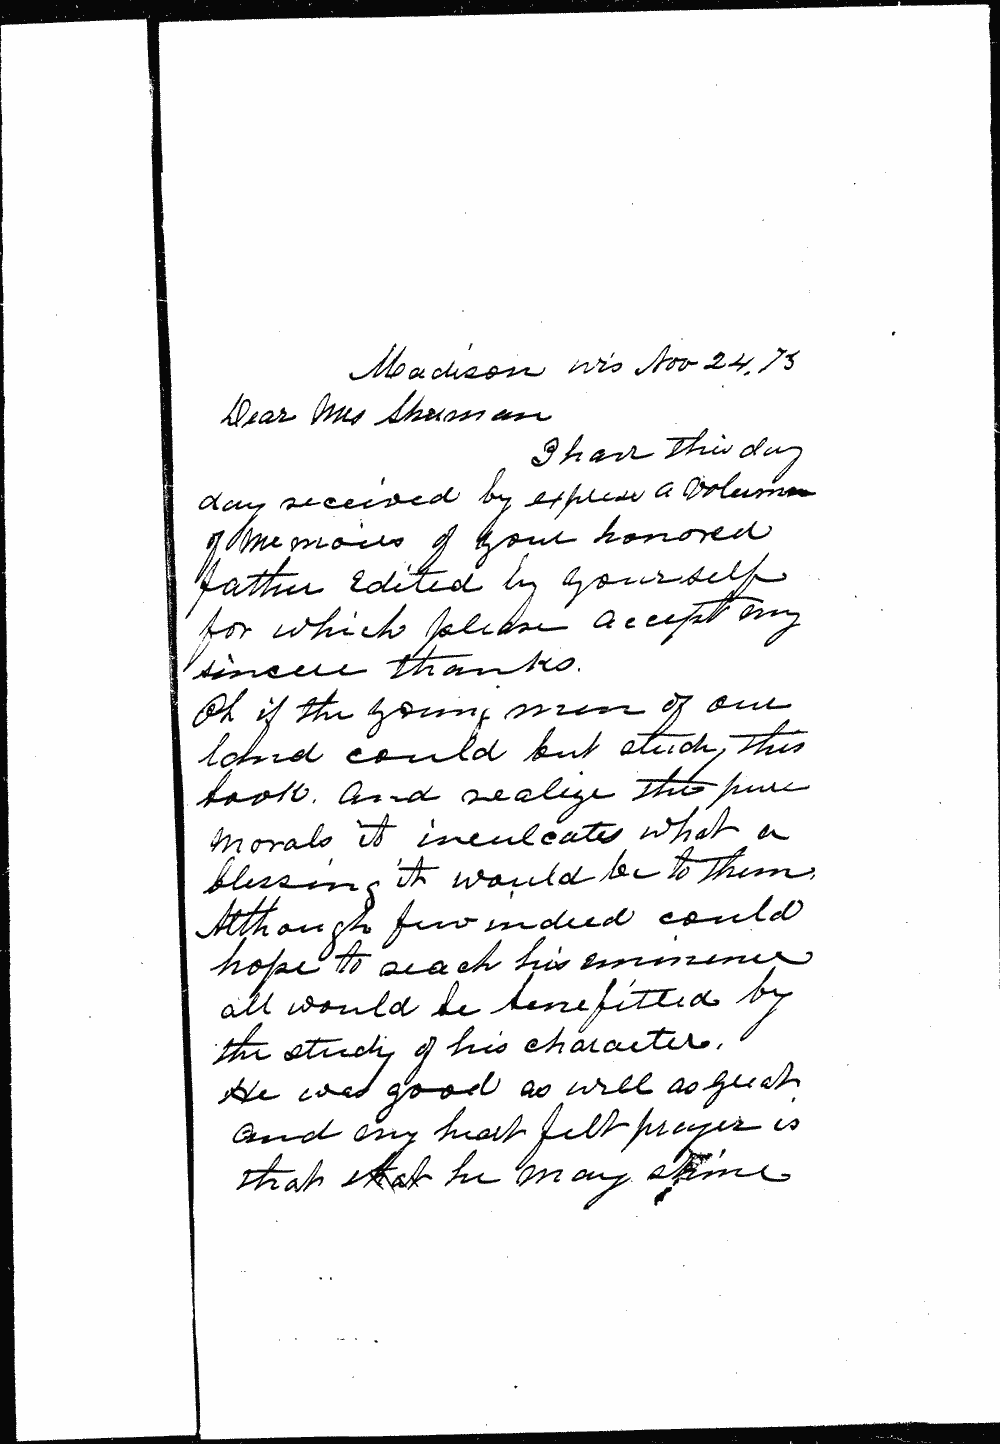 Madison Wis Nov 24. 73
Dear Mrs Sherman
I have this day
day received by express a Volume
of Memoirs of your honored
father Edited by yourself
for which please accept my
sincere thanks.
Oh if the young men of our
land could but study this
book. and realize the pure
morals it inculcates what a
blessing it would be to them.
Although few indeed could
hope to reach his eminence
all would be benefitted by
the study of his character.
He was good as well as great
and my heart felt prayer is
that that he may shine